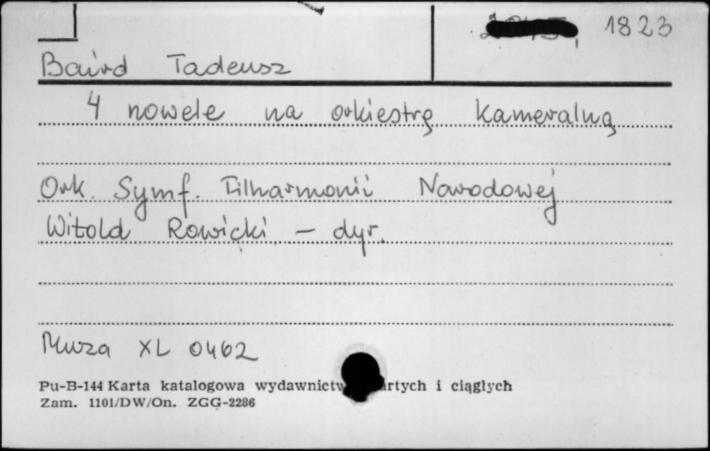 1823
Baird Tadeusz
4 nowele na orkiestrę kameralną
Ork. Symf. Filharmonii Narodowej
Witold Rowicki - dyr.
Muza XL 0462
Pu-B-144 Karta katalogowa wydawnictw artych i ciągłych
Zam. 1101/DW/On. ZGG-2286